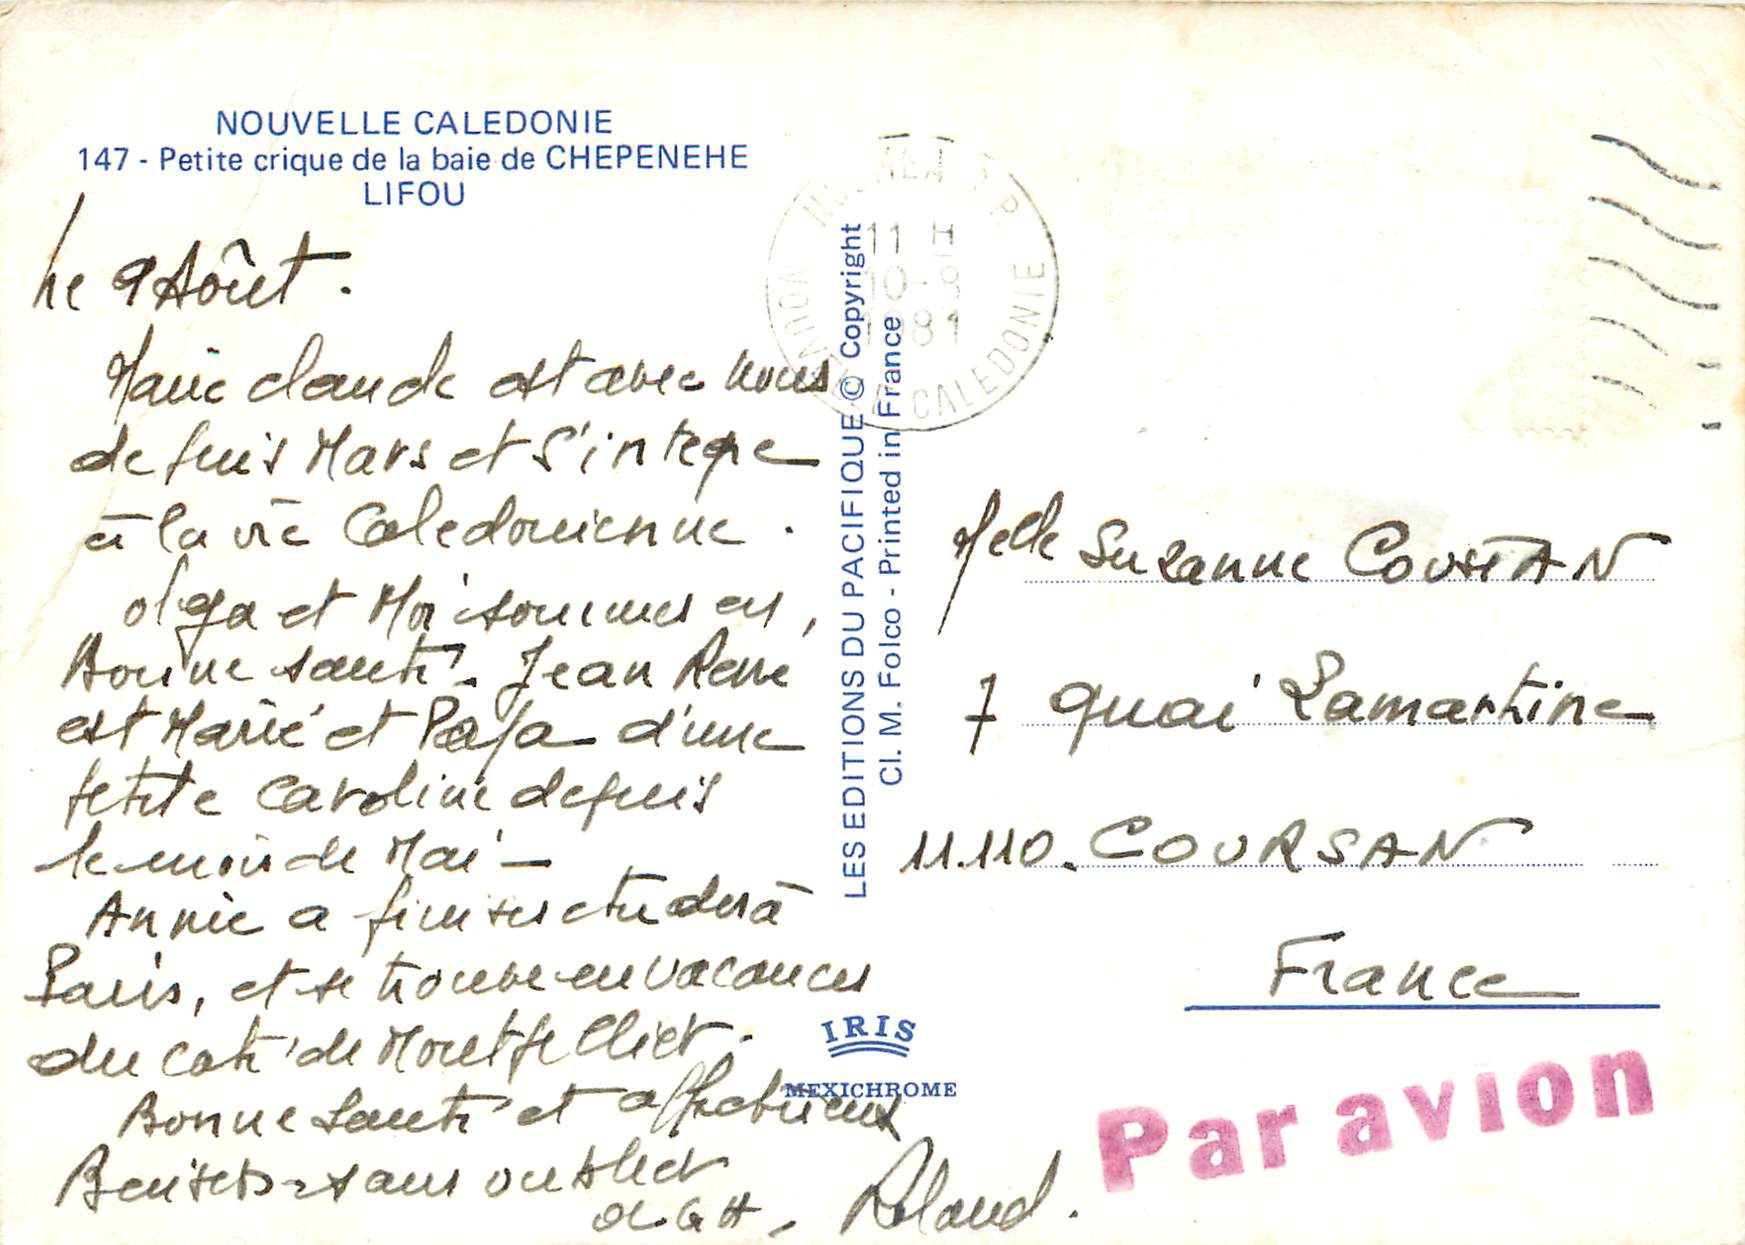 NOUVELLE CALEDONIE
147 - Petite crique de la baie de CHEPENEHE
LIFOU
Le 9 Août.
Marie claude est avec nous
depuis Mars et s'intègre
à la vie Caledonienne.
olga et Moi sommes en
Bonne santé. Jean René
est Marié et Papa d'une
petite Caroline depuis
le mois de Mai -
Annie a fini ses etudes à
Paris, et se trouve en vacances
du coté de Montpellier.
Bonne santé et affectueux
Baisers sans oublier
Roland.
LES EDITIONS DU PACIFIQUE © Copyright
Cl. M. Folco - Printed in France
IRIS
MEXICHROME
NOUMEA R.P
11 H
10-8
1981
NOUVELLE CALEDONIE
Melle Suzanne COUSTAN
7 quai Lamartine
11.110. COURSAN
France
Par avion